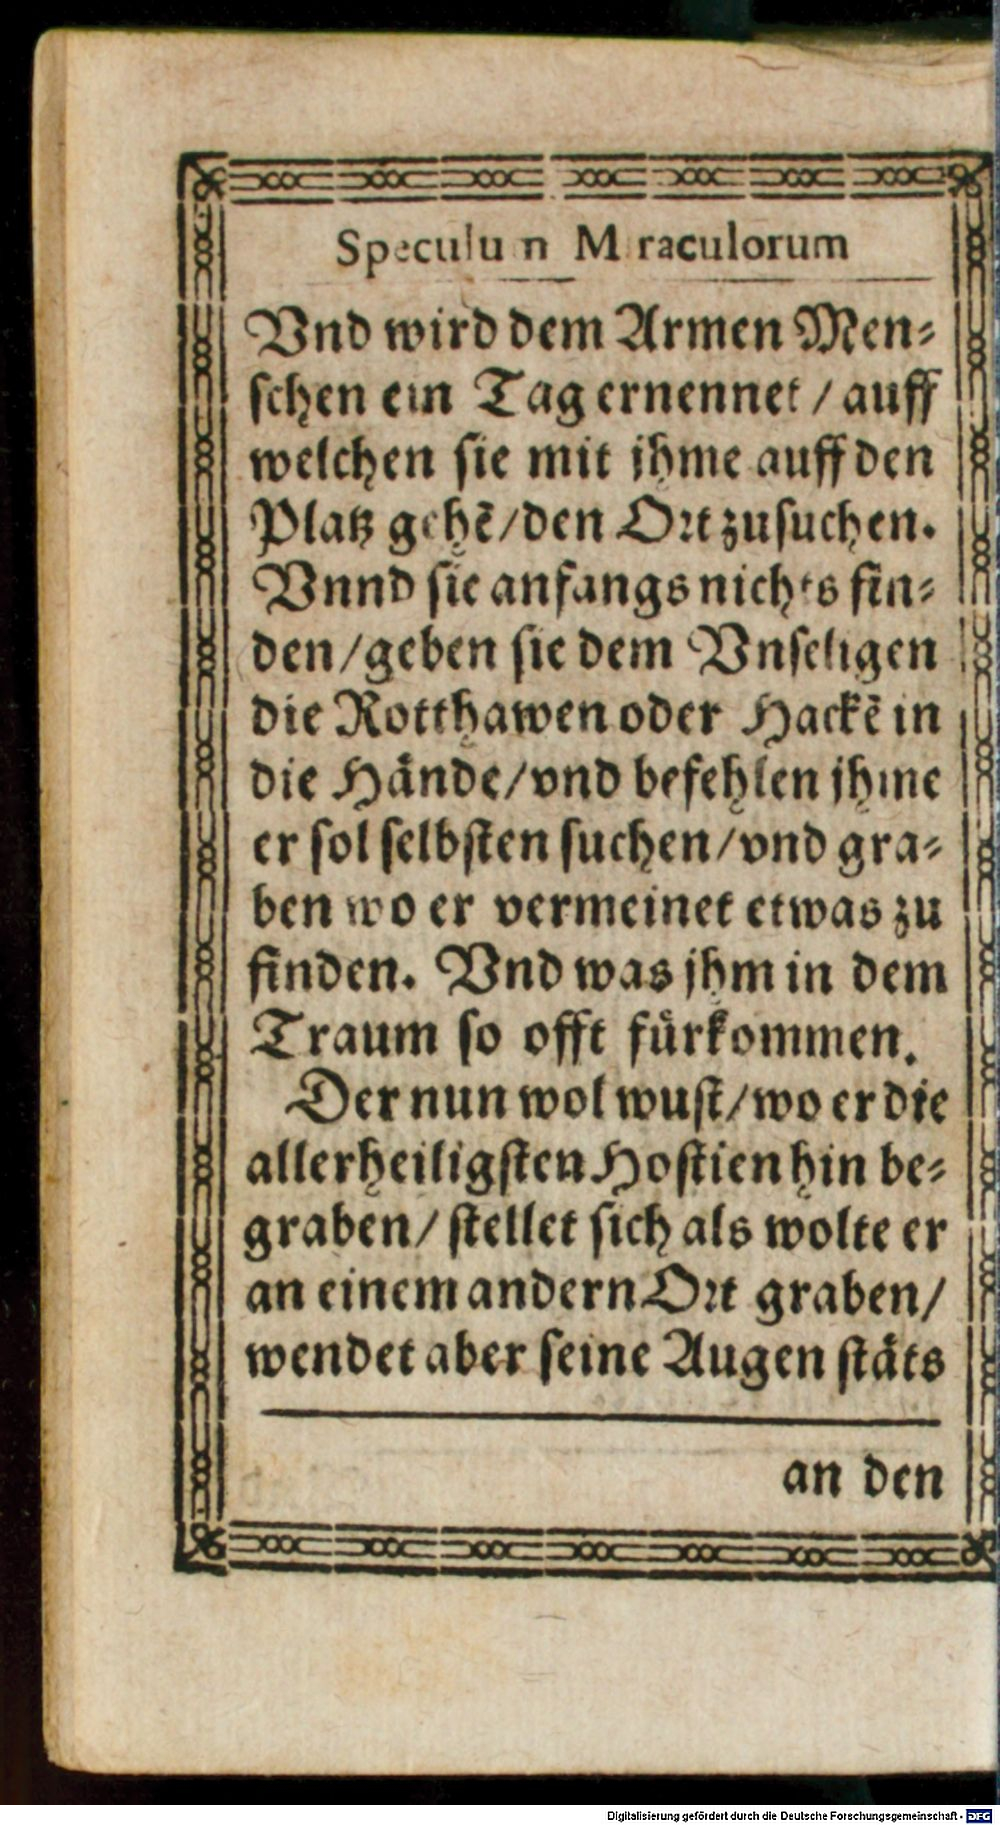 Speculum Miraculorum
Vnd wird dem Armen Men⸗
ſchen ein Tag ernennet / auff
welchen ſie mit jhme auff den
Platz gehẽ/den Ort zuſuchen.
Vnnd ſie anfangs nichts fin⸗
den/geben ſie dem Vnſeligen
die Rotthawen oder Hackẽ in
die Hände/vnd befehlen jhme
er ſol ſelbſten ſuchen/vnd gra⸗
ben wo er vermeinet etwas zu
finden. Vnd was jhm in dem
Traum ſo offt fürkommen.
Der nun wol wuſt/wo er die
allerheiligſten Hoſtien hin be⸗
graben/ ſtellet ſich als wolte er
an einem andern Ort graben/
wendet aber ſeine Augen ſtäts
an den
Digitalisierung gefördert durch die Deutsche Forschungsgemeinschaft - DFG